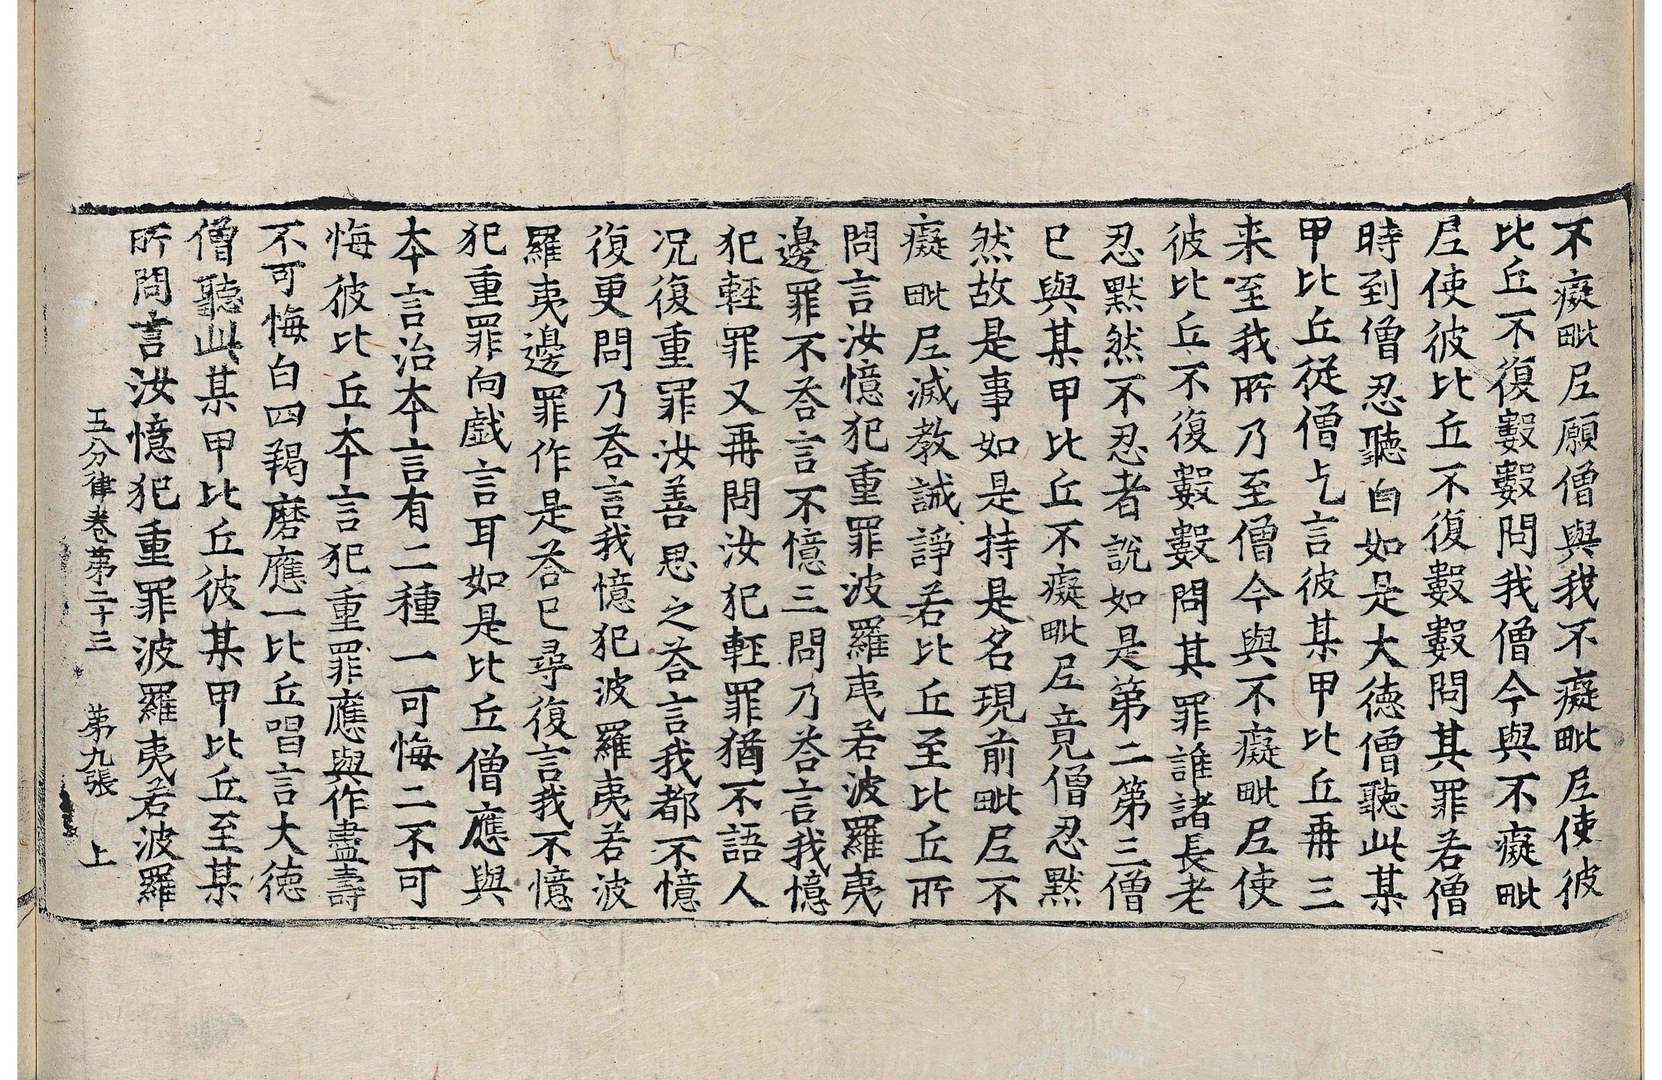 不癡毗尼願僧與我不癡毗尼使彼
比丘不復數數問我僧今與不癡毗
尼使彼比丘不復數數問其罪若僧
時到僧忍聽白如是大德僧聽此某
甲比丘從僧乞言彼某甲比丘再三
来至我所乃至僧今與不癡毗尼使
彼比丘不復數數問其罪誰諸長老
忍黙然不忍者說如是第二第三僧
已與某甲比丘不癡毗尼竟僧忍黙
然故是事如是持是名現前毗尼不
癡毗尼滅教誡諍若比丘至比丘所
問言汝憶犯重罪波羅夷若波羅夷
邊罪不荅言不憶三問乃荅言我憶
犯輕罪又再問汝犯輕罪猶不語人
况復重罪汝善思之荅言我都不憶
復更問乃荅言我憶犯波羅夷若波
羅夷邊罪作是荅已尋復言我不憶
犯重罪向戲言耳如是比丘僧應與
本言治本言有二種一可悔二不可
悔彼比丘本言犯重罪應與作盡壽
不可悔白四羯磨應一比丘唱言大德
僧聽此某甲比丘彼某甲比丘至某
所問言汝憶犯重罪波羅夷若波羅
五分律卷第二十三 第九張 上